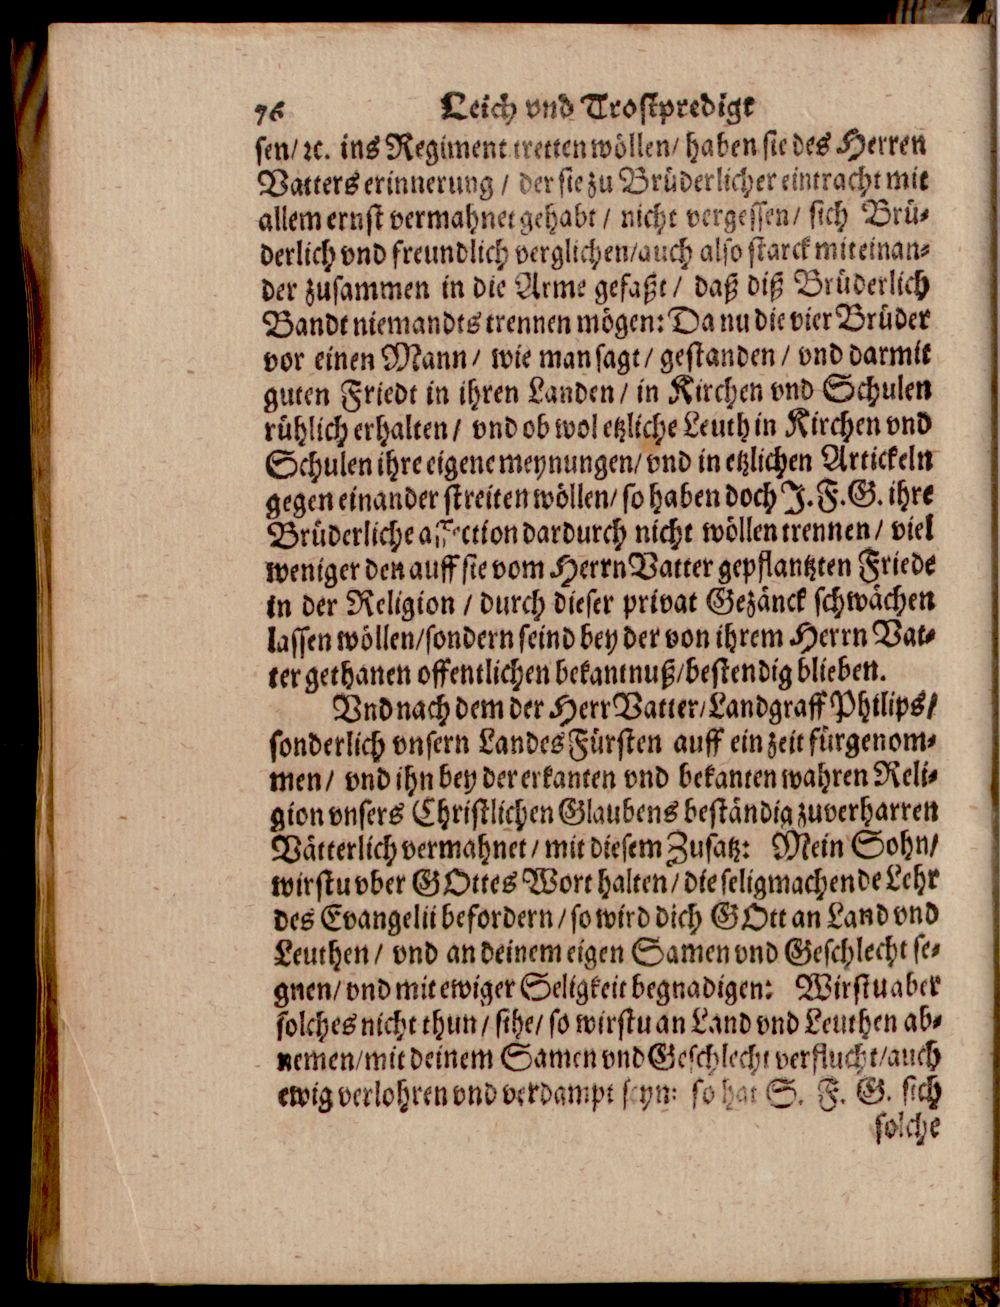 76 Leich vnd Trostpredigt
sen/ ꝛc. ins Regiment tretten wöllen/ haben sie des Herren
Vatters erinnerung / der sie zu Brüderlicher eintracht mit
allem ernst vermahnet gehabt / nicht vergessen/ sich Brü-
derlich vnd freundlich verglichen/auch also starck miteinan-
der zusammen in die Arme gefaßt / daß diß Brüderlich
Bandt niemandts trennen mögen: Da nu die vier Brüder
vor einen Mann/ wie man sagt/ gestanden / vnd darmit
guten Friedt in ihren Landen / in Kirchen vnd Schulen
rühlich erhalten / vnd ob wol etzliche Leuth in Kirchen vnd
Schulen ihre eigene meynungen/ vnd in etzlichen Artickeln
gegen einander streiten wöllen/ so haben doch J. F. G. ihre
Brüderliche affection dardurch nicht wöllen trennen / viel
weniger den auff sie vom Herrn Vatter gepflantzten Friede
in der Religion / durch dieser privat Gezänck schwächen
lassen wöllen/sondern seind bey der von ihrem Herrn Vat-
ter gethanen offentlichen bekantnuß/bestendig blieben.
Vnd nach dem der Herr Vatter/Landgraff Philips/
sonderlich vnsern LandesFürsten auff ein zeit fürgenom-
men/ vnd ihn bey der erkanten vnd bekanten wahren Reli-
gion vnsers Christlichen Glaubens beständig zuverharren
Vätterlich vermahnet / mit diesem Zusatz: Mein Sohn/
wirstu vber GOttes Wort halten / die seligmachende Lehr
des Evangelii befordern / so wird dich GOtt an Land vnd
Leuthen / vnd an deinem eigen Samen vnd Geschlecht se-
gnen/ vnd mit ewiger Seligkeit begnadigen: Wirstu aber
solches nicht thun / sihe/ so wirstu an Land vnd Leuthen ab-
nemen/mit deinem Samen vnd Geschlecht verflucht/auch
ewig verlohren vnd verdampt seyn: so hat S. F. G. sich
solche